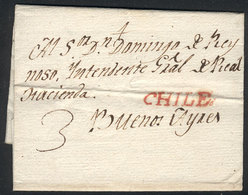 Al Sor. Dn. Domingo de Rey
noso, Intendente Gral de Real
Hacienda.
CHILE
3 Buenos Ayres